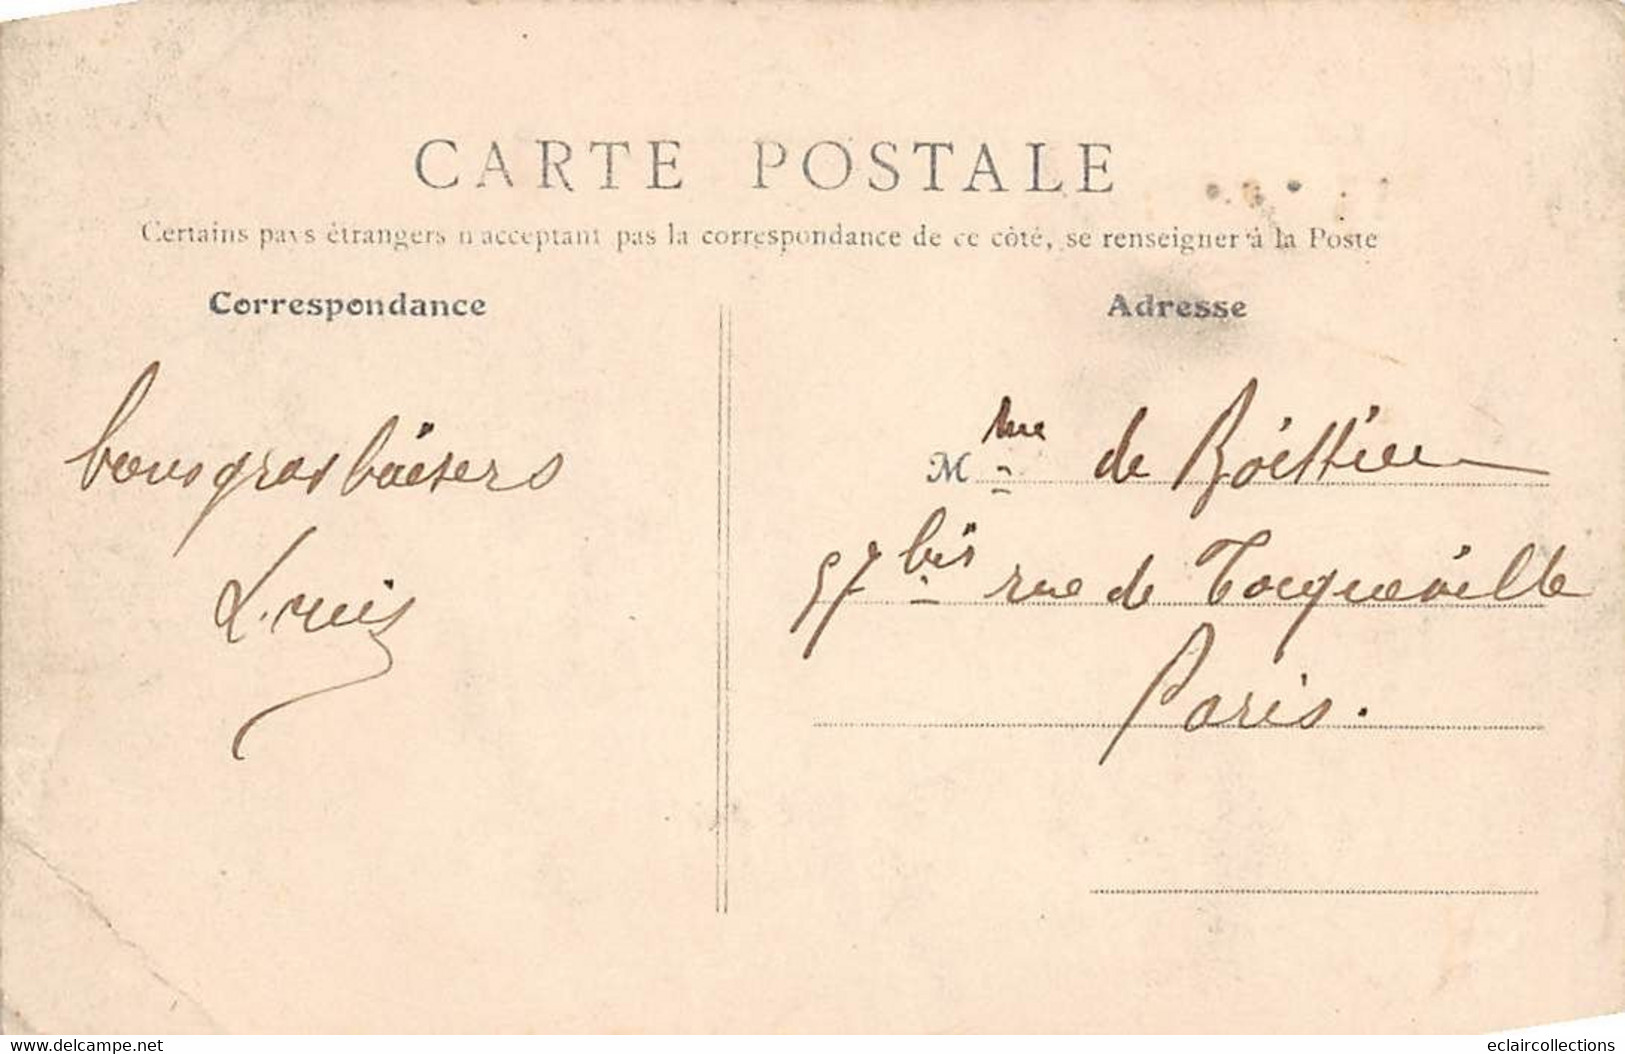 CARTE POSTALE
Certains pays étrangers n'acceptant pas la correspondance de ce côté, se renseigner à la Poste
Correspondance
Adresse
bons gros baisers
Louis
Mme de Boittier
57 bis rue de Tocqueville
Paris.
www.delcampe.net
eclaircollections